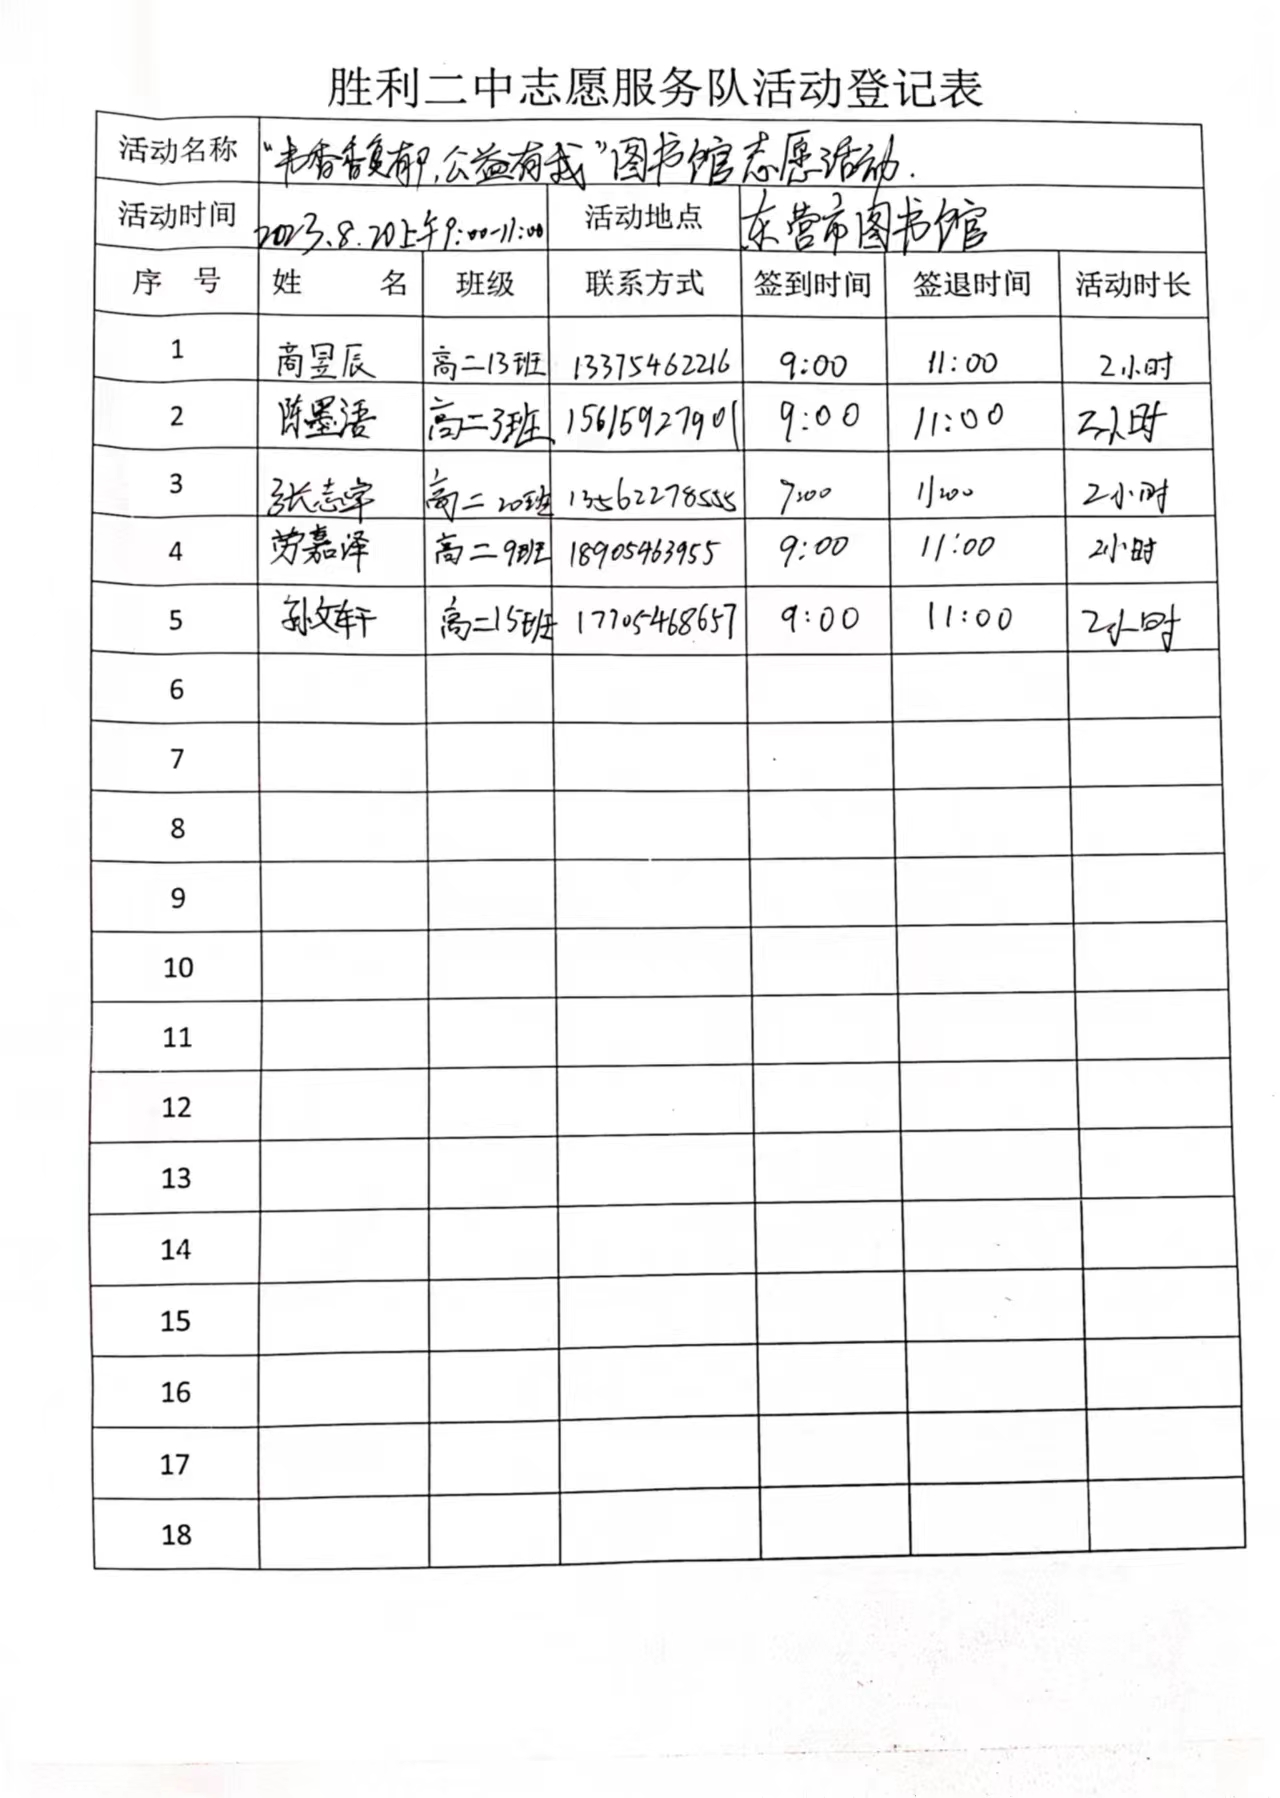 胜利二中志愿服务队活动登记表
活动名称 “书香馥郁,公益有我”图书馆志愿活动.
活动时间 2023.8.20上午9:00-11:00 活动地点 东营市图书馆
序 号 姓 名 班级 联系方式 签到时间 签退时间 活动时长
1 商昱辰 高二13班 13375462216 9:00 11:00 2小时
2 陈墨语 高二3班 15615927901 9:00 11:00 2小时
3 张志宇 高二20班 13562278555 9:00 11:00 2小时
4 劳嘉泽 高二9班 18905463955 9:00 11:00 2小时
5 孙文轩 高二15班 17705468657 9:00 11:00 2小时
6
7
8
9
10
11
12
13
14
15
16
17
18